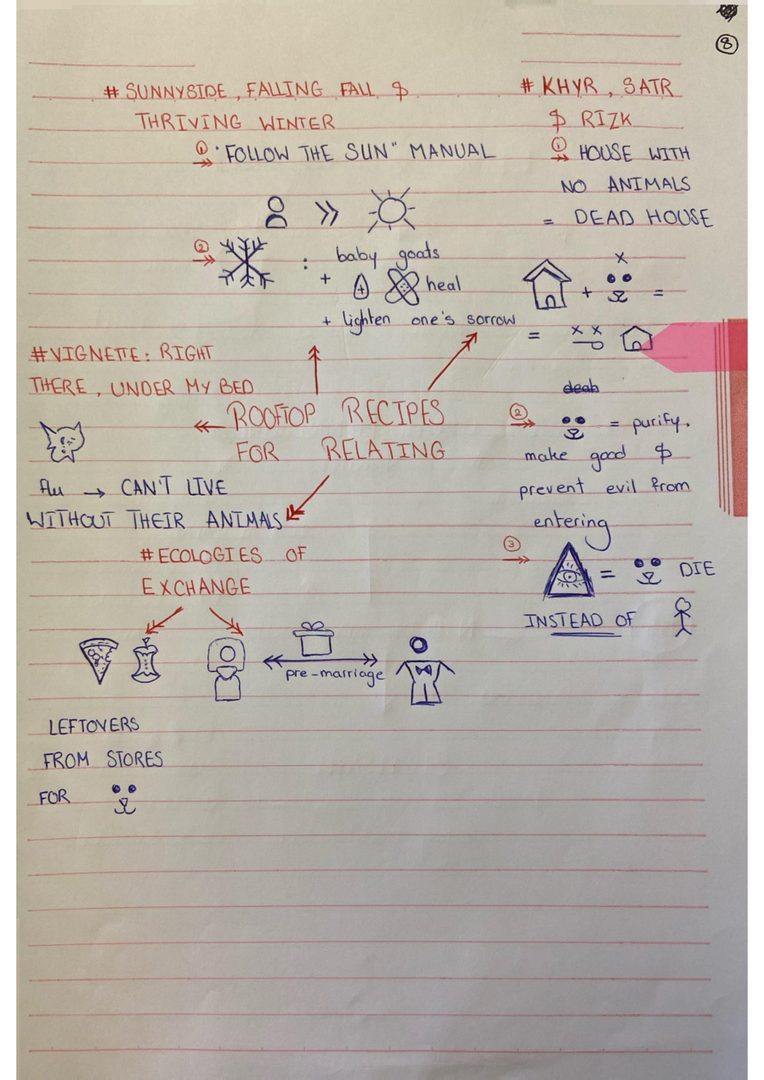 8
# SUNNYSIDE, FALLING FALL &
THRIVING WINTER
① "FOLLOW THE SUN" MANUAL
②
: baby goats
+ heal
+ lighten one's sorrow
# KHYR, SATR
& RIZK
① HOUSE WITH
NO ANIMALS
= DEAD HOUSE
+ =
=
② = purify,
make good &
prevent evil from
entering
③ = DIE
INSTEAD OF
# VIGNETTE: RIGHT
THERE, UNDER MY BED
ROOFTOP RECIPES
FOR RELATING
→ CAN'T LIVE
WITHOUT THEIR ANIMALS
# ECOLOGIES OF
EXCHANGE
pre-marriage
LEFTOVERS
FROM STORES
FOR